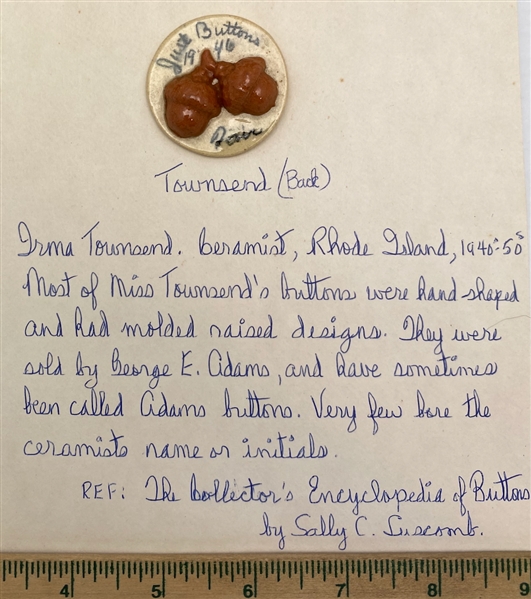 Just Buttons
19 46
Townsend (Back)
Irma Townsend. Ceramist, Rhode Island, 1940s-50s
Most of Miss Townsend's buttons were hand-shaped
and had molded raised designs. They were
sold by George E. Adams, and have sometimes
been called Adams buttons. Very few bore the
ceramists name or initials.
REF: The Collector's Encyclopedia of Buttons
by Sally C. Luscomb.
4 5 6 7 8 9